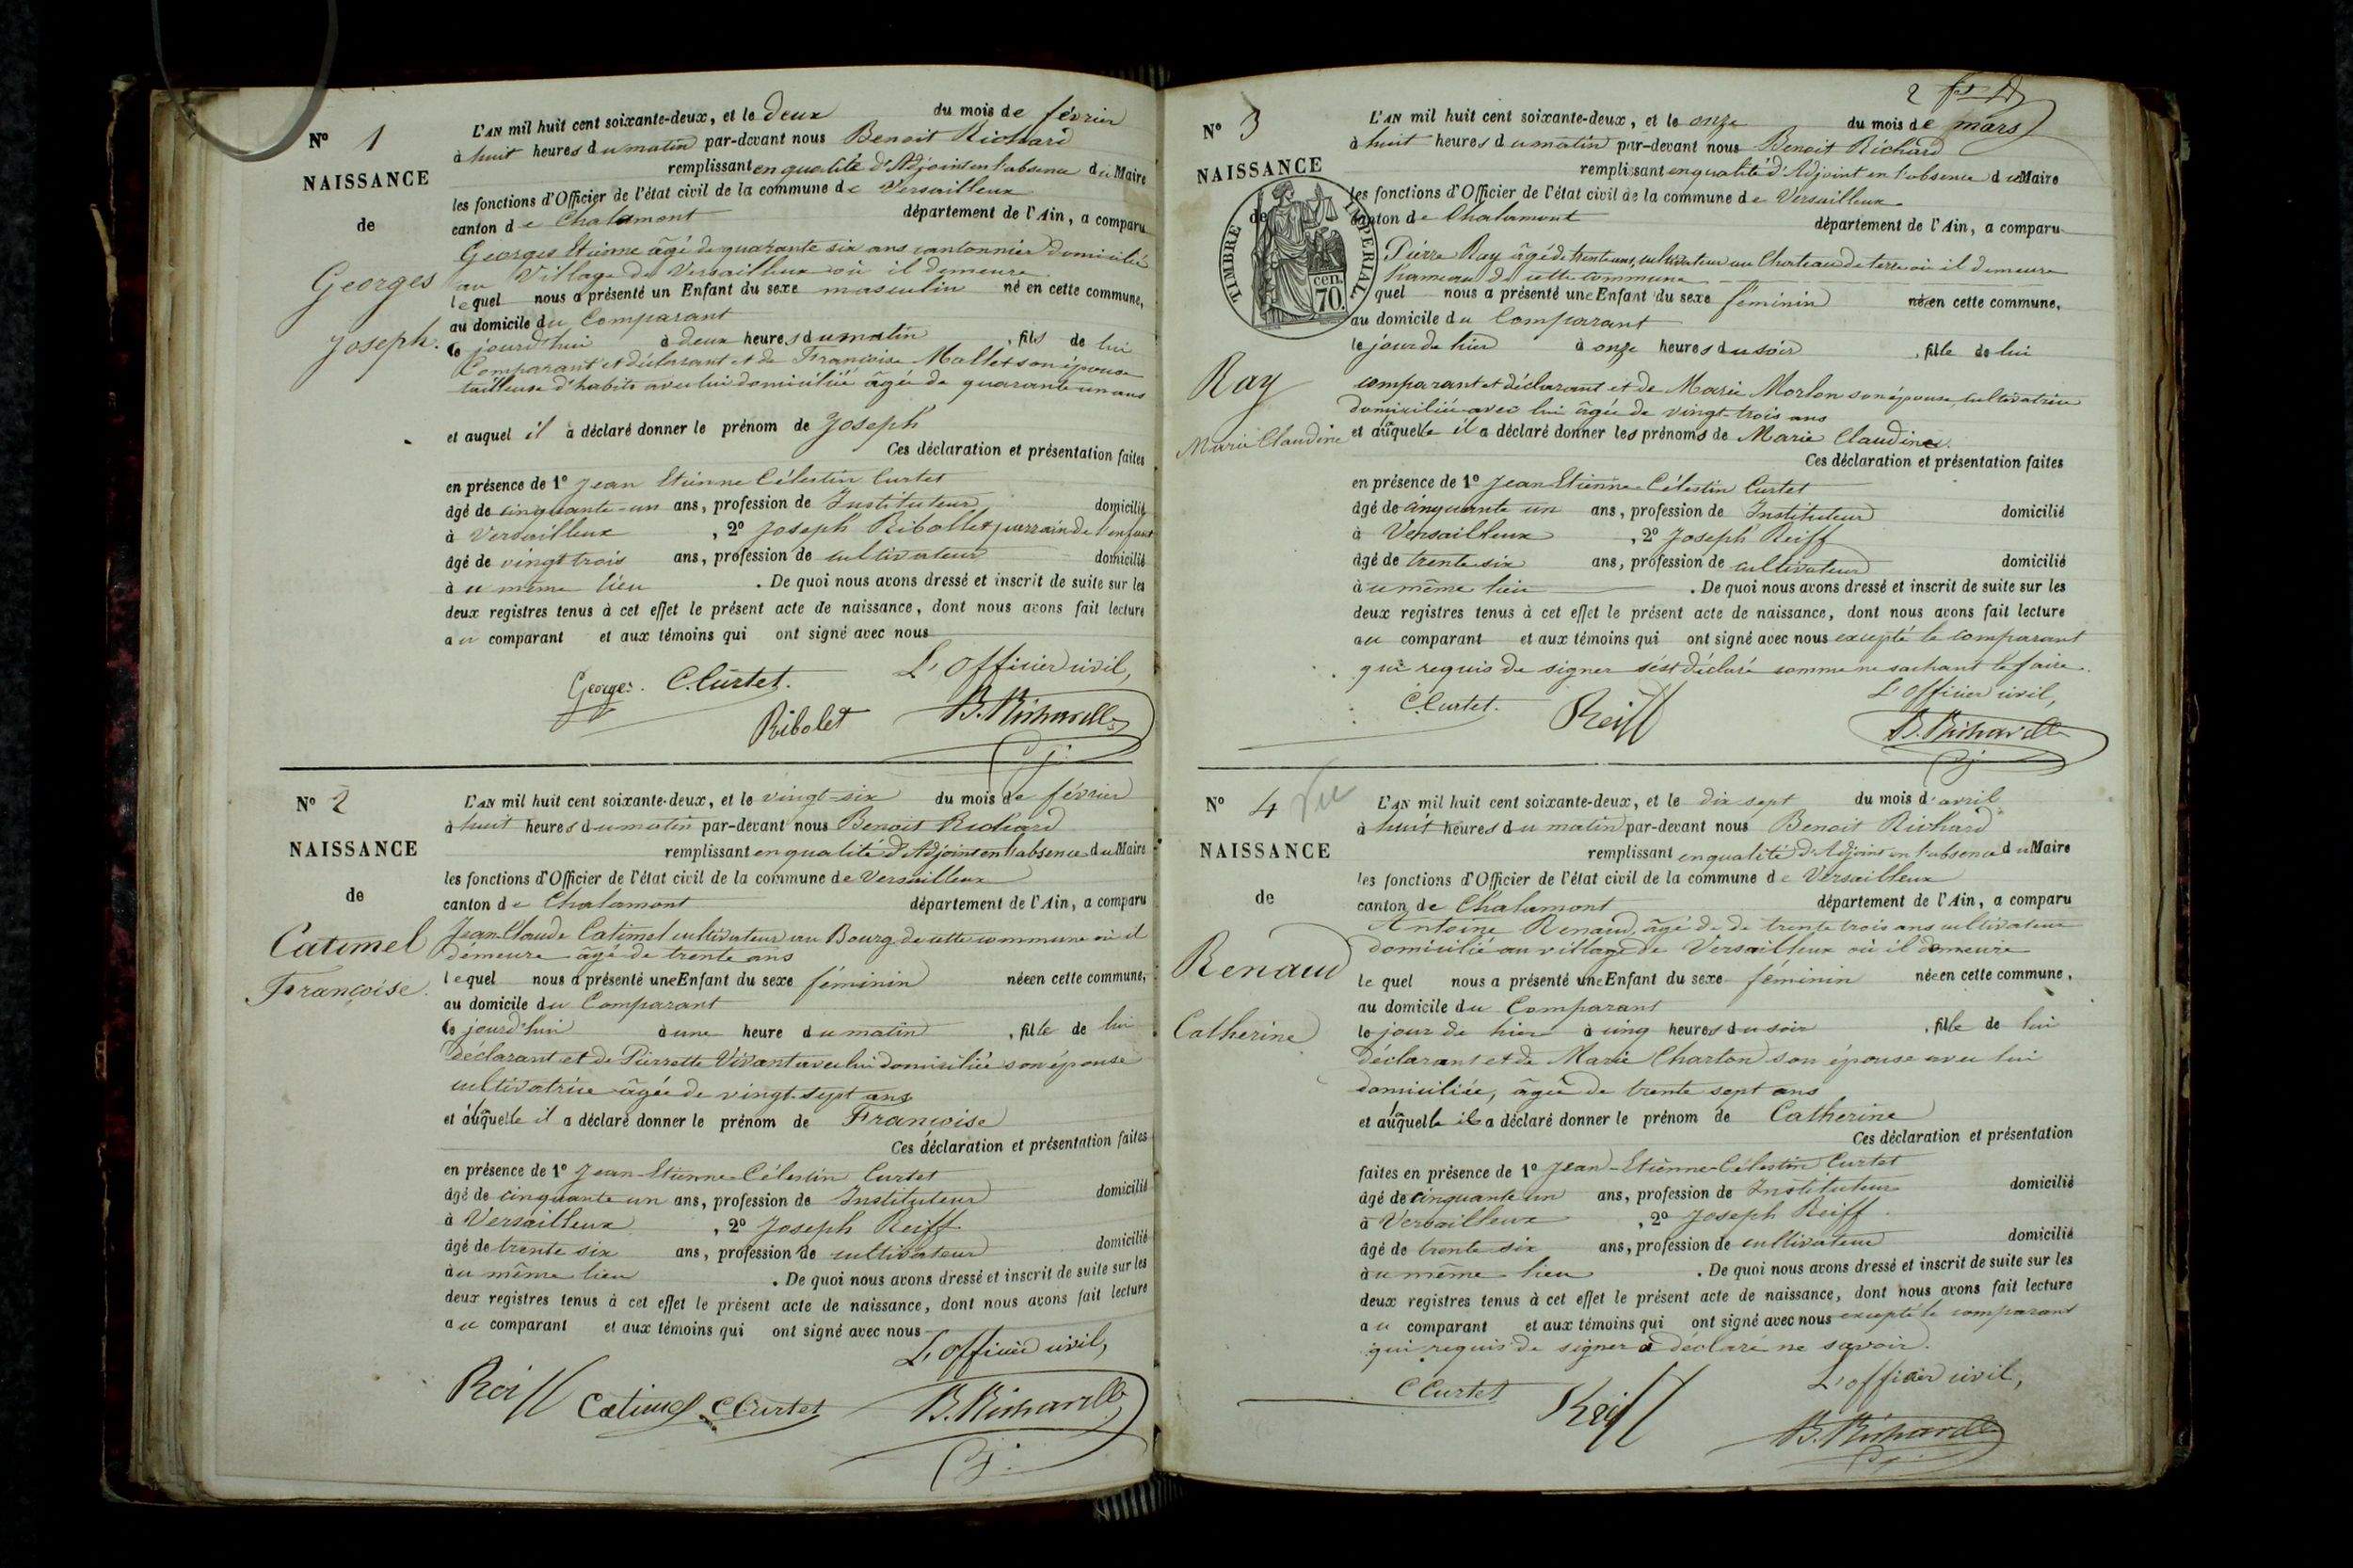 N° 1
NAISSANCE
de
Georges
Joseph.
L'AN mil huit cent soixante-deux, et le deux du mois de février
à huit heures du matin par-devant nous Benoit Richard
remplissant en qualité d'Adjoint en l'absence du Maire
les fonctions d'Officier de l'état civil de la commune de Versailleux
canton de Chalamont département de l'Ain, a comparu
Georges Etienne âgé de quarante six ans cantonnier domicilié
au Village de Versailleux où il demeure
lequel nous a présenté un Enfant du sexe masculin né en cette commune,
au domicile du Comparant
le jourd'hui à deux heures du matin, fils de lui
Comparant et déclarant et de Françoise Mallet son épouse
tailleuse d'habits avec lui domiciliée âgée de quarante un ans
et auquel il a déclaré donner le prénom de Joseph
Ces déclaration et présentation faites
en présence de 1° Jean Etienne Célestin Curtet
âgé de cinquante-un ans, profession de Instituteur domicilié
à Versailleux, 2° Joseph Ribollet parrain de l'enfant
âgé de vingt trois ans, profession de cultivateur domicilié
à u même lieu. De quoi nous avons dressé et inscrit de suite sur les
deux registres tenus à cet effet le présent acte de naissance, dont nous avons fait lecture
au comparant et aux témoins qui ont signé avec nous
L'Officier civil,
Georges. C. Curtet.
Ribolet B. Richard
N° 2
NAISSANCE
de
Catimel
Françoise.
L'AN mil huit cent soixante-deux, et le vingt-six du mois de février
à huit heures du matin par-devant nous Benoit Richard
remplissant en qualité d'Adjoint en l'absence du Maire
les fonctions d'Officier de l'état civil de la commune de Versailleux
canton de Chalamont département de l'Ain, a comparu
Jean-Claude Catimel cultivateur au Bourg de cette commune où il
demeure âgé de trente ans
lequel nous a présenté une Enfant du sexe féminin née en cette commune,
au domicile du Comparant
le jourd'hui à une heure du matin, fille de lui
déclarant et de Pierrette Vivant avec lui domiciliée son épouse
cultivatrice âgée de vingt-sept ans
et à laquelle il a déclaré donner le prénom de Françoise
Ces déclaration et présentation faites
en présence de 1° Jean-Etienne-Célestin Curtet
âgé de cinquante un ans, profession de Instituteur domicilié
à Versailleux, 2° Joseph Reiff
âgé de trente six ans, profession de cultivateur domicilié
à u même lieu. De quoi nous avons dressé et inscrit de suite sur les
deux registres tenus à cet effet le présent acte de naissance, dont nous avons fait lecture
au comparant et aux témoins qui ont signé avec nous
L'Officier civil,
Reiff Catimel C Curtet B. Richard
N° 3
NAISSANCE
de
TIMBRE IMPERIAL
70 cen.
Ray
Marie Claudine
L'AN mil huit cent soixante-deux, et le onze du mois de mars
à huit heures du matin par-devant nous Benoit Richard
remplissant en qualité d'Adjoint en l'absence du Maire
les fonctions d'Officier de l'état civil de la commune de Versailleux
canton de Chalamont département de l'Ain, a comparu
Pierre Ray âgé de trente ans, cultivateur au Chateau de terre où il demeure
hameau de cette commune
quel nous a présenté une Enfant du sexe féminin née en cette commune,
au domicile du Comparant
le jour de hier à onze heures du soir, fille de lui
comparant et déclarant et de Marie Morlon son épouse, cultivatrice
domiciliée avec lui âgée de vingt-trois ans
et à laquelle il a déclaré donner les prénoms de Marie Claudine.
Ces déclaration et présentation faites
en présence de 1° Jean-Etienne-Célestin Curtet
âgé de cinquante un ans, profession de Instituteur domicilié
à Versailleux, 2° Joseph Reiff
âgé de trente six ans, profession de cultivateur domicilié
à u même lieu. De quoi nous avons dressé et inscrit de suite sur les
deux registres tenus à cet effet le présent acte de naissance, dont nous avons fait lecture
au comparant et aux témoins qui ont signé avec nous excepté le comparant
qui requis de signer s'est déclaré comme ne sachant le faire.
L'Officier civil,
C. Curtet. Reiff B. Richard
N° 4 Vu
NAISSANCE
de
Renaud
Catherine
L'AN mil huit cent soixante-deux, et le dix sept du mois d'avril
à huit heures du matin par-devant nous Benoit Richard
remplissant en qualité d'Adjoint en l'absence du Maire
les fonctions d'Officier de l'état civil de la commune de Versailleux
canton de Chalamont département de l'Ain, a comparu
Antoine Renaud, âgé de de trente trois ans cultivateur
domicilié au village de Versailleux où il demeure
lequel nous a présenté une Enfant du sexe féminin née en cette commune,
au domicile du Comparant
le jour de hier à cinq heures du soir, fille de lui
déclarant et de Marie Charton son épouse avec lui
domiciliée, âgée de trente sept ans
et à laquelle il a déclaré donner le prénom de Catherine
Ces déclaration et présentation
faites en présence de 1° Jean-Etienne-Célestin Curtet
âgé de cinquante un ans, profession de Instituteur domicilié
à Versailleux, 2° Joseph Reiff
âgé de trente six ans, profession de cultivateur domicilié
à u même lieu. De quoi nous avons dressé et inscrit de suite sur les
deux registres tenus à cet effet le présent acte de naissance, dont nous avons fait lecture
au comparant et aux témoins qui ont signé avec nous excepté le comparant
qui requis de signer a déclaré ne savoir.
L'officier civil,
C Curtet Reiff B. Richard